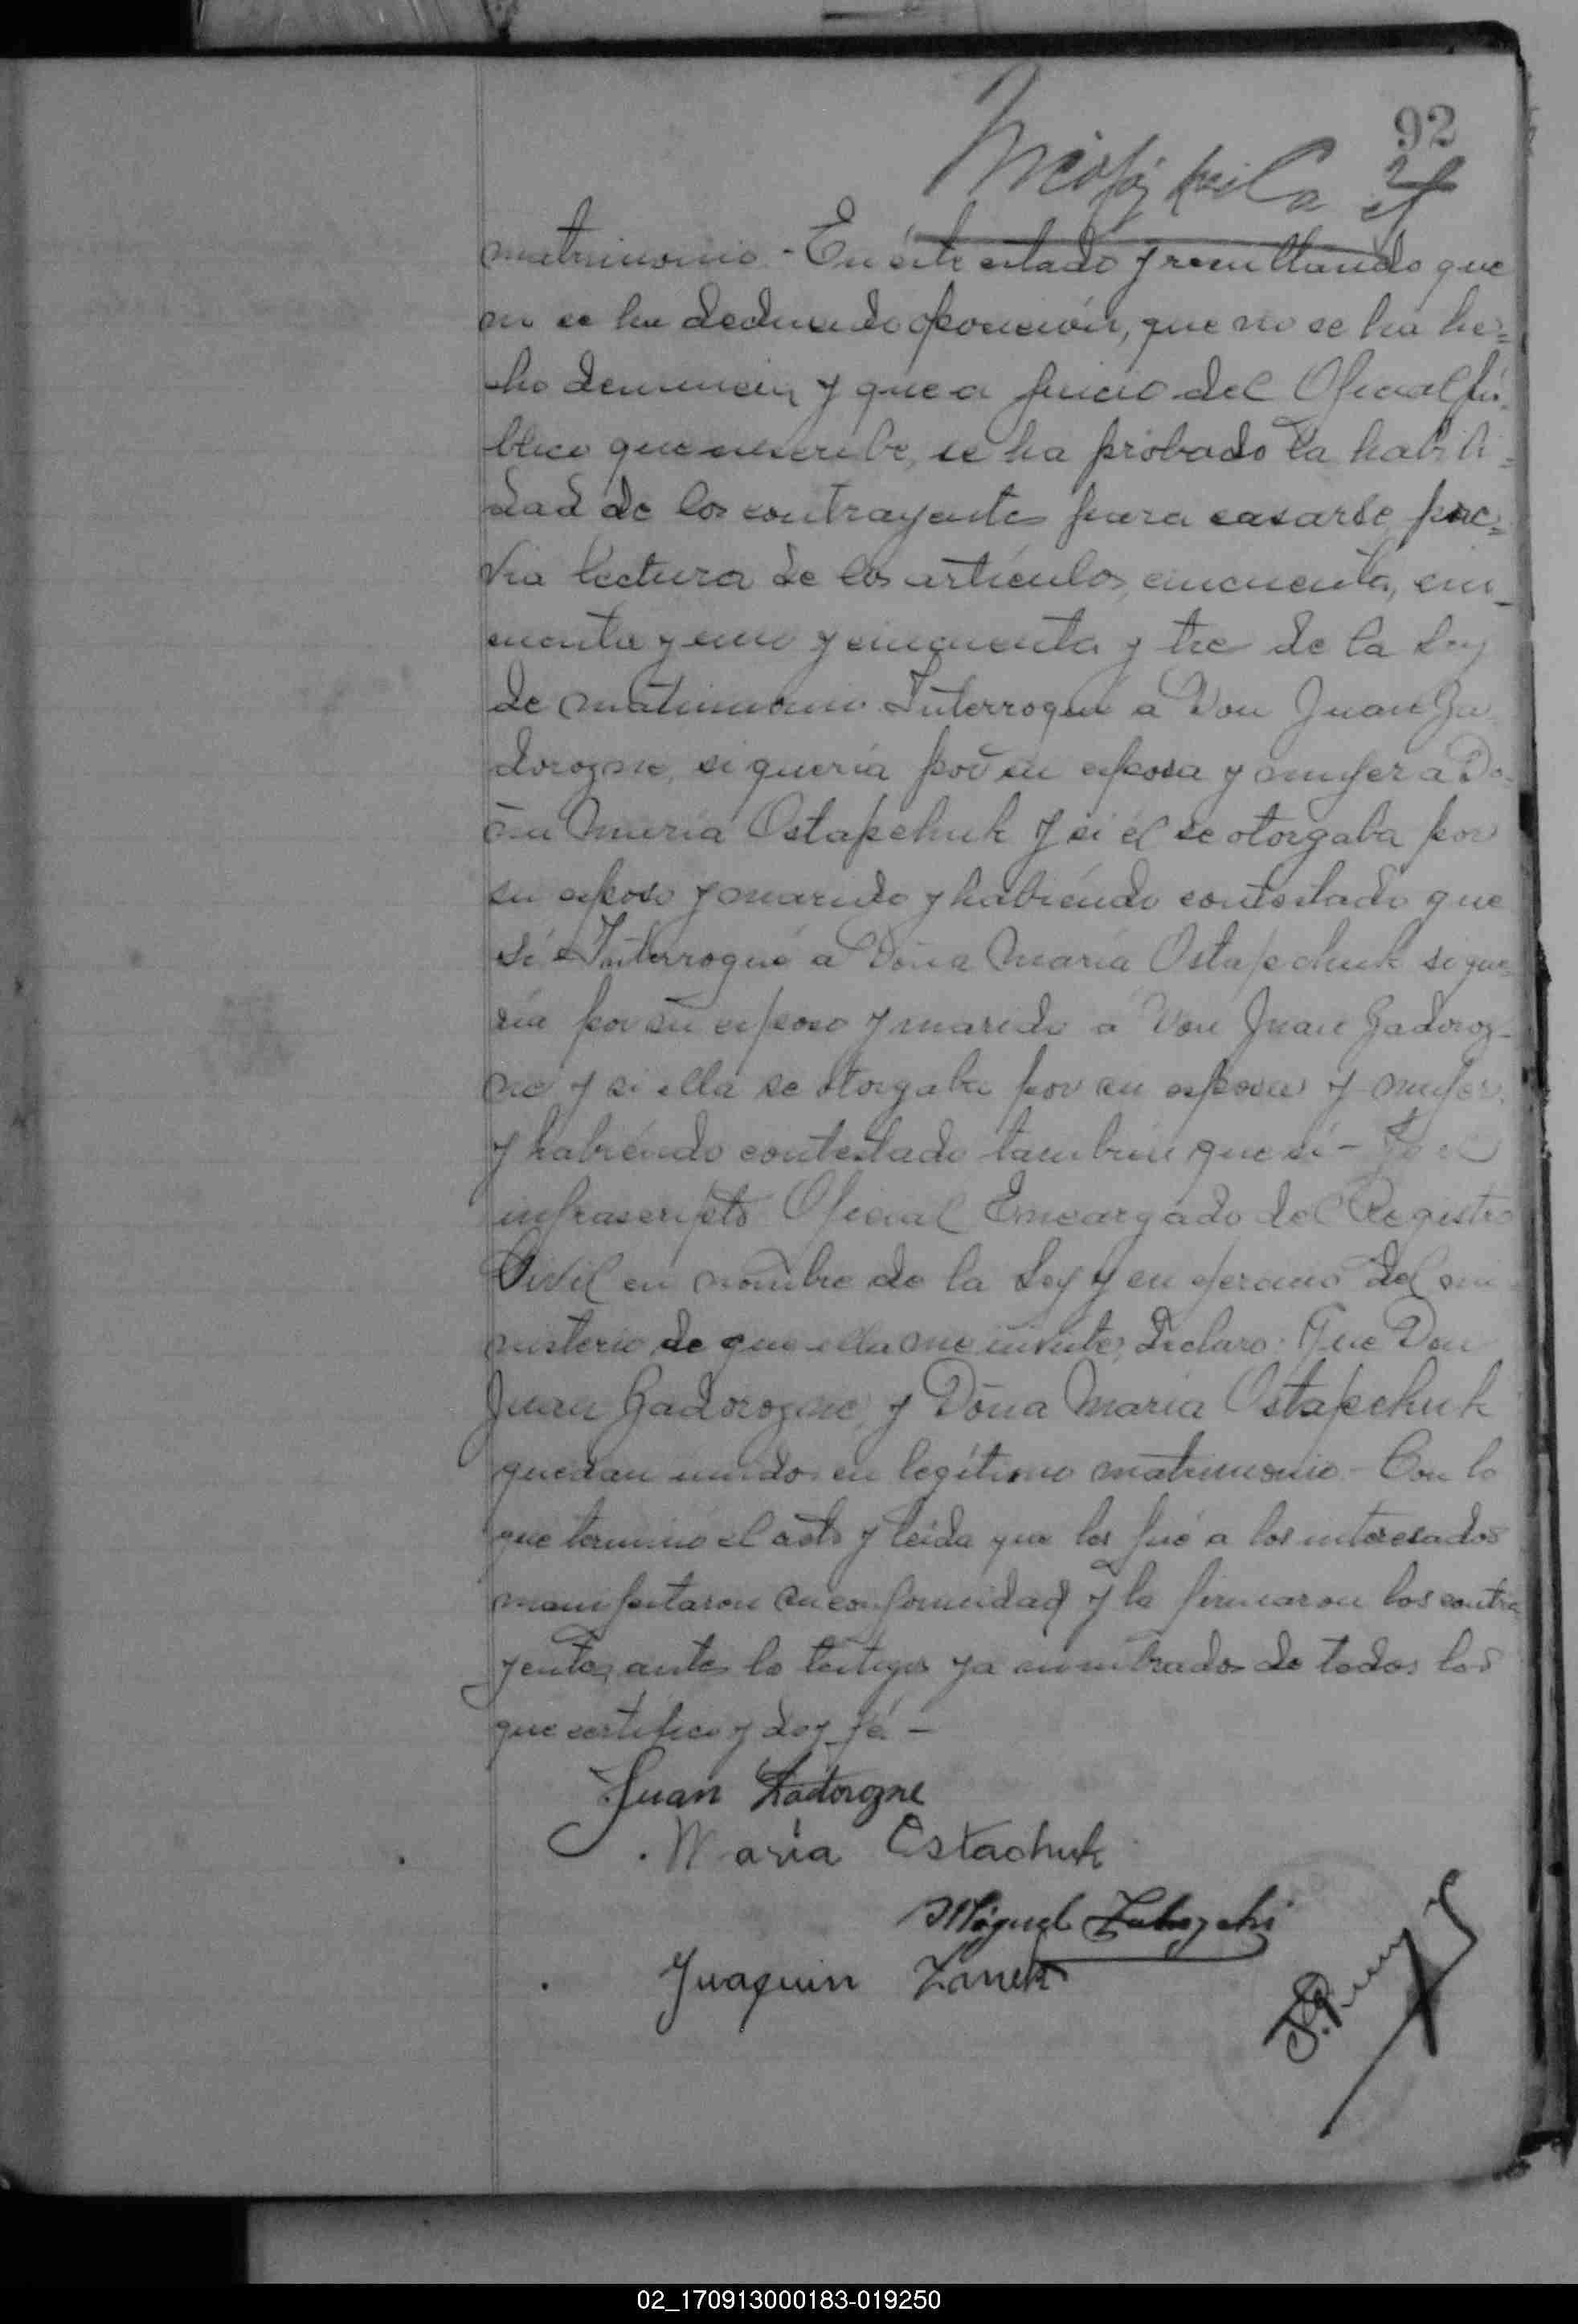 92
matrimonio - En éste estado y resultando que
no se ha deducido oposición, que no se ha he=
cho denuncia y que a juicio del Oficial pú-
blico que suscribe, se ha probado la habili=
dad de los contrayentes para casarse, pre=
via lectura de los artículos, cincuenta, cin-
cuenta y uno y cincuenta y tres de la Ley
de matrimonio Interrogué a Don Juan Ga
dorozne, si quería por su esposa y mujer a Do-
ña María Ostapchuk y si él se otorgaba por
su esposo y marido y habiéndo contestado que
sí - Interrogué a Doña María Ostapchuk si que=
ría por su esposo y marido a Don Juan Gadoroz-
ne y si ella se otorgaba por su esposa y mujer,
y habiéndo contestado también que sí - Yo el
infrascripto Oficial Encargado del Registro
Civil en nombre de la Ley y en ejercicio del mi
nisterio de que ella me inviste, declaro: Que Don
Juan Gadorozne, y Doña María Ostapchuk
quedan unidos en legítimo matrimonio. - Con lo
que terminó el acto y leída que les fué a los interesados
manifestaron su conformidad y la firmaron los contra
yentes, ante lo testigos ya nombrados de todos los
que certifico y doy fé. -
Juan Zadorozne
María Ostachuk
Miguel
Juaquin Zanek
02_170913000183-019250